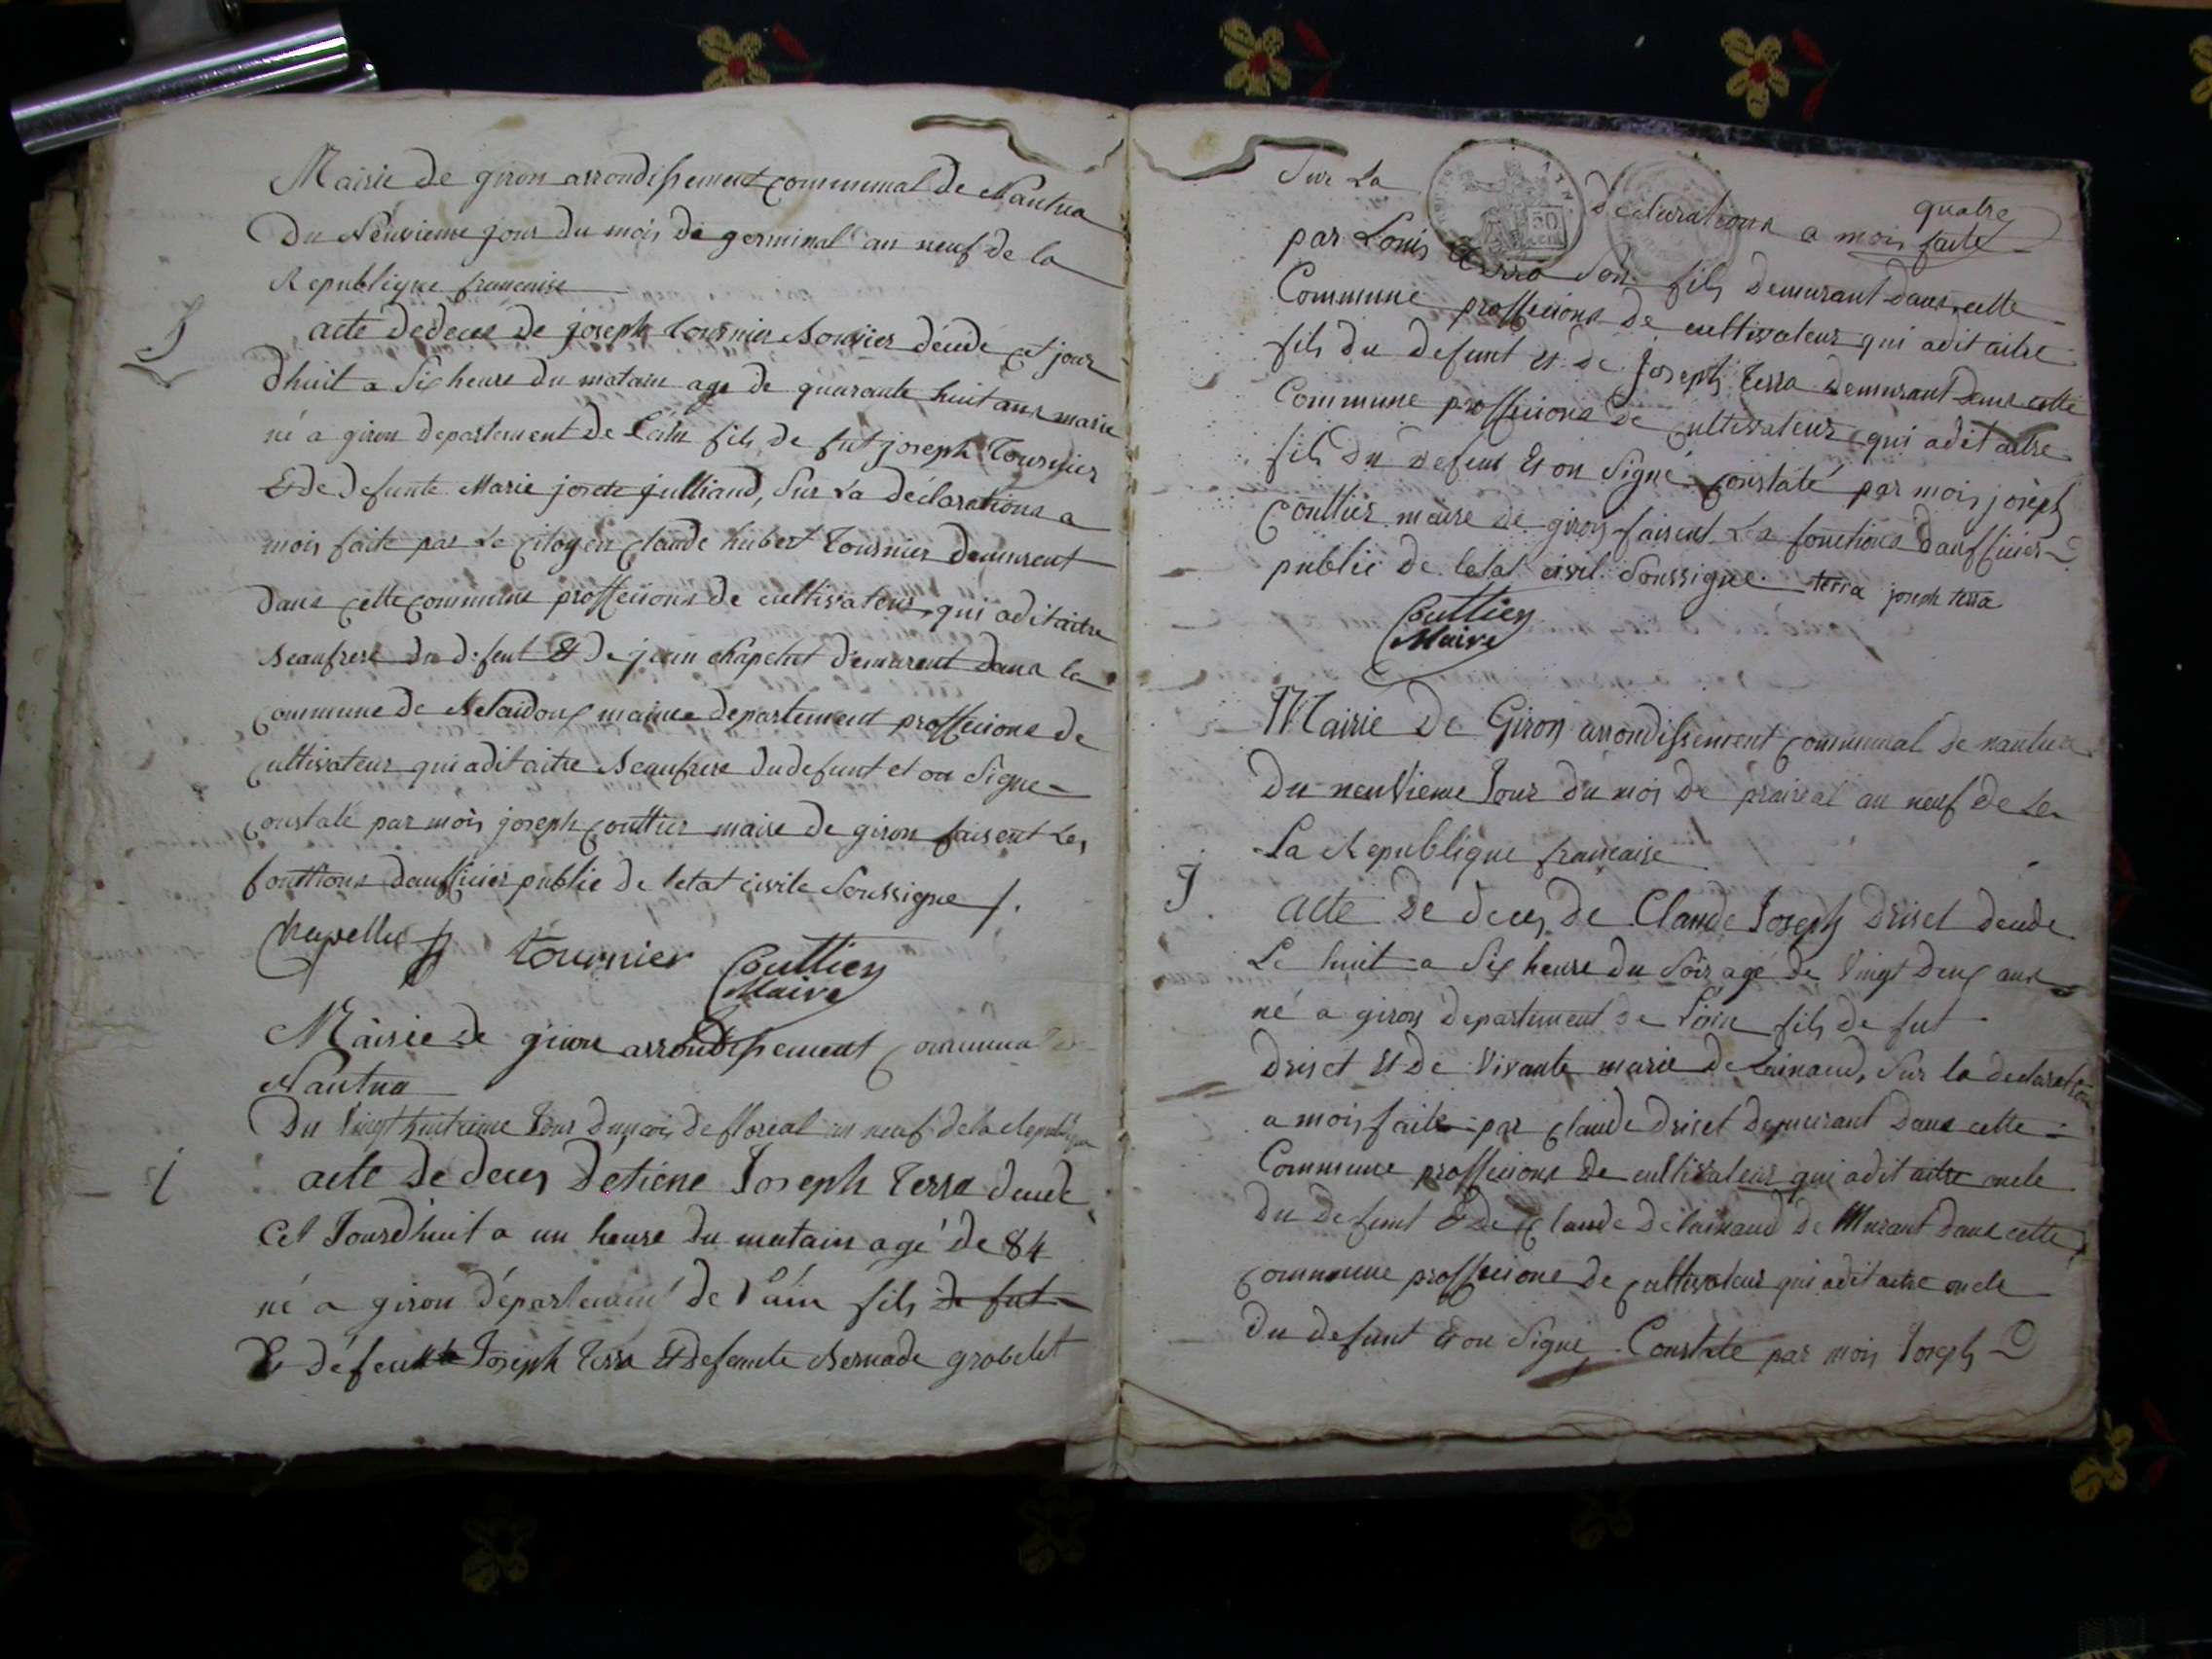 Mairie de giron arrondissement communal de Nantua
Du Neuvieme jour du mois de germinal an neuf de la
Republique francaise
acte de deces de joseph tournier Bouvier décédé cet jour
dhuit a six heure du matain age de quarante huit ans marie
né a giron departement de Lain fils de fut joseph Tournier
Et de defunte Marie josete julliand, Sur La déclarations a
mois faite par Le Citoyen Claude hubert Tournier demeurent
dans cette commune proffecions de cultivateur, qui a dit aitre
Beaufrere du defent Et de jean demurent dans la
commune de maime departement proffecions de
Cultivateur qui a dit aitre Beaufrere du defunt et on Signe
Constaté par mois joseph Couttier maire de giron faisent Les
fonttions daufficier public de letat civile Soussigne
tournier Couttier
Maire
Mairie de giron arrondissement Communal de
Nantua
Du Vingt huitieme Jour du mois de floreal an neuf de la Republique
acte de deces D'etiene Joseph Terra décédé
Cet Jourdhuit a un heure du matain agé de 84
né a giron département de Lain fils de fut
De défeunt Joseph Terra Et defeunte Bernade grobelet
Sur La
50
déclarations a mois faite
quatre
par Louis Terra Son fils demurant dans cette
Commune proffecions de cultivateur qui a dit aitre
fils du defunt Et de Joseph Terra demurant dans cette
Commune proffecions de Cultivateur qui a dit aitre
fils du defunt Et on Signé Constaté par mois joseph
Couttier maire de giron faisent La fonctions daufficier
public de letat civil Soussigne terra joseph terra
Couttier
Maire
Mairie De Giron arrondissement communal de nantua
Du neuvieme Jour du mois de prairial an neuf de La
La Republique francaise
acte De deces De Claude Joseph Driset décédé
Le huit a Six heure du Soir agé de Vingt deux ans
né a giron département de Lain fils de fut
Driset Et De Vivante marie De Lainaud, Sur la declaration
a mois faite par Claude Driset Demeurant Dans cette
Commune proffecions De cultivateur qui a dit aitre oncle
Du Defunt Et De Claude De Lainaud De Murant Dans cette
Commune proffecions De Cultivateur qui a dit aitre oncle
Du defunt Et on Signé. Constate par mois Joseph